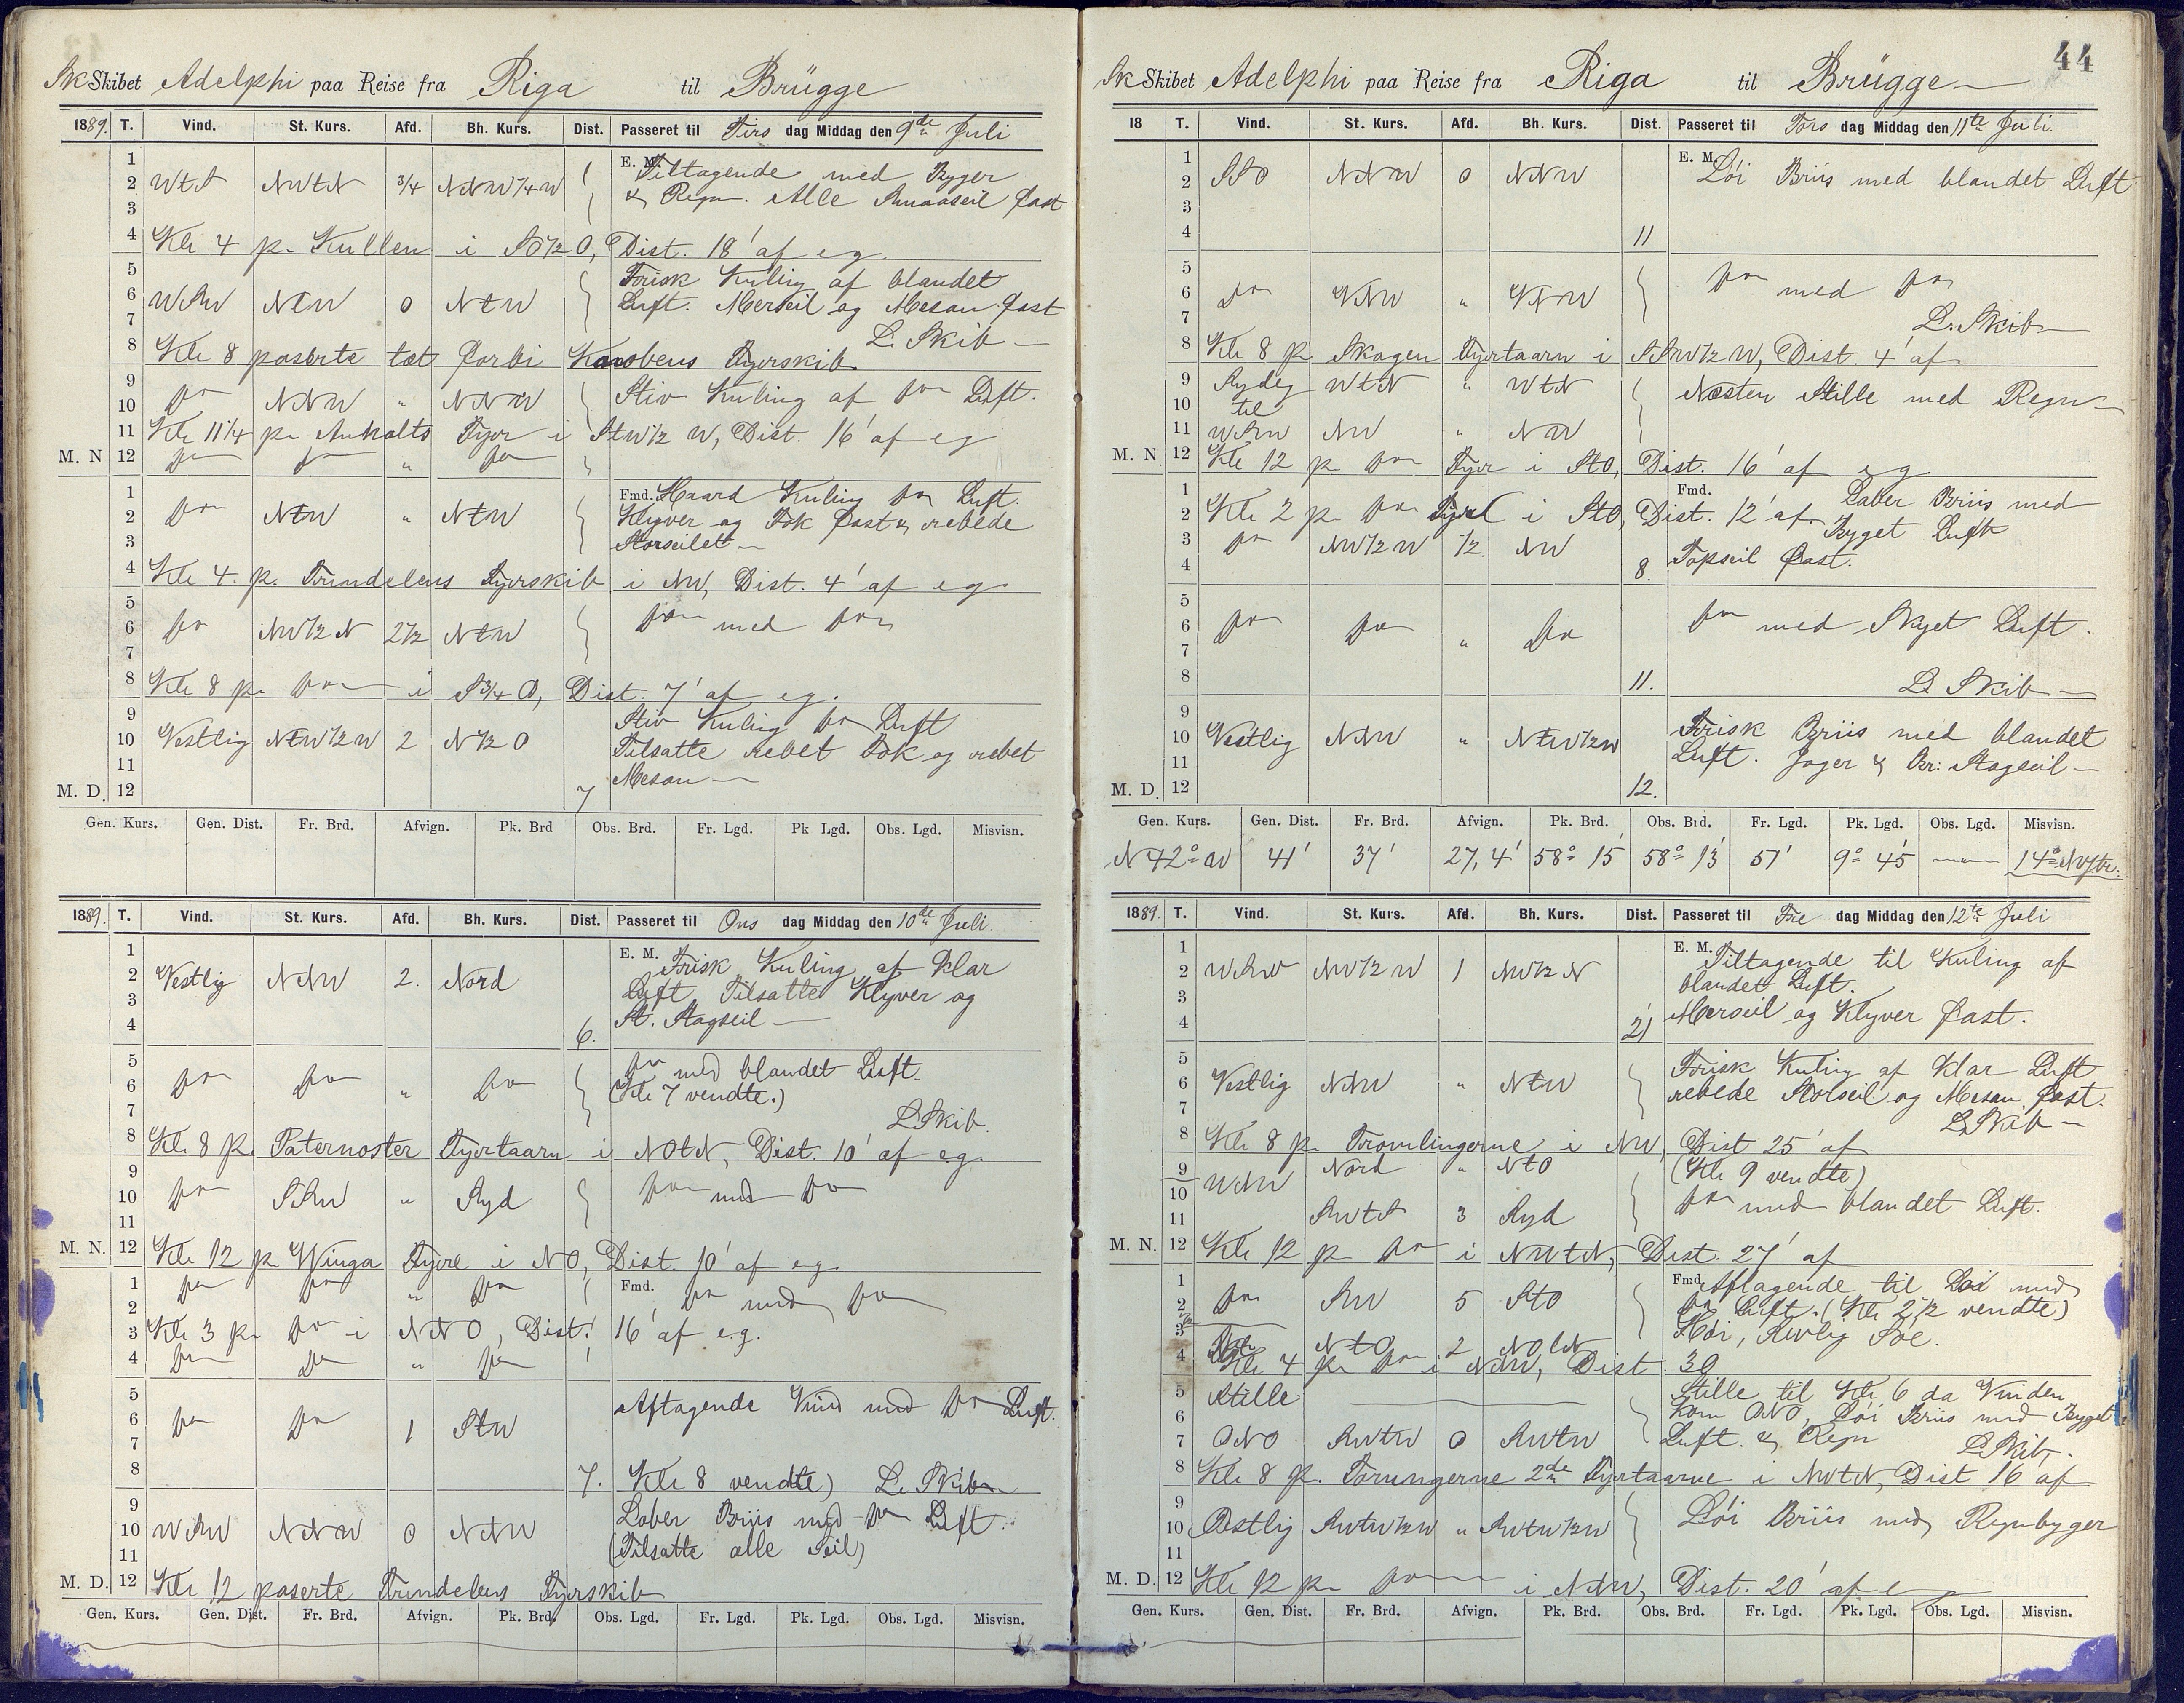 Sk Skibet Adelphi paa Reise fra Riga til Brügge
1889. T. Vind. St. Kurs. Afd. Bh. Kurs. Dist. Passeret til Tirs dag Middag den 9de Juli
1 E. M. Tiltagende med Byger
2 WtS NWtN 3/4 NNW 1/4 W & Regn. Alle Smaaseil fast
3
4 Kl. 4 p. Kullen i SO 1/2 O, Dist. 18' af eg.
5 Frisk Kuling af blandet
6 WSW NtW 0 NtW Luft. Merseil og Mesan fast
7 L. Skib
8 Kl. 8 paserte tæt forbi Kobbens Fyrskib
9 do NNW " NNW Stiv Kuling af do Luft.
10
11 Kl. 11 1/4 p. Anholts Fyr i StW 1/2 W, Dist. 16' af eg
M. N 12 do do " do
1 Fmd. Haard Kuling do Luft.
2 do NtW " NtW Klyver og Fok fast & rebede
3 Storseilet
4 Kl. 4. p. Trindelens Fyrskib i NW, Dist. 4' af eg
5
6 do NW 1/2 N 2 1/2 NtW do med do
7
8 Kl. 8 p. do i S 3/4 O, Dist. 7' af eg.
9 Stiv Kuling do Luft
10 Vestlig NtW 1/2 W 2 N 1/2 O Tilsatte rebet Fok og rebet
11 Mesan
M. D. 12 7
Gen. Kurs. Gen. Dist. Fr. Brd. Afvign. Pk. Brd Obs. Brd. Fr. Lgd. Pk Lgd. Obs. Lgd. Misvisn.
1889. T. Vind. St. Kurs. Afd. Bh. Kurs. Dist. Passeret til Ons dag Middag den 10de Juli.
1 E. M. Frisk Kuling af klar
2 Vestlig NNW 2. Nord Luft. Tilsatte Klyver og
3 St. Stagseil
4 6.
5 do med blandet Luft.
6 do do " do (Kl. 7 vendte.)
7 L. Skib.
8 Kl. 8 p. Paternoster Fyrtaarn i NOtN, Dist. 10' af eg.
9
10 do SSW " Syd do med do
11
M. N. 12 Kl. 12 p. Winga Fyre i NO, Dist. 10' af eg.
1 do do " do Fmd. do med do
2
3 Kl. 3 p. do i NNO, Dist. 16' af e.g.
4 do do " do
5 Aftagende Vind med do Luft.
6 do do 1 StW
7
8 7. Kl. 8 vendte) L. Skib
9 Laber Briis med do Luft.
10 WSW NNW 0 NNW (Tilsatte alle Seil)
11
M. D. 12 Kl. 12 paserte Trindelens Fyrskib
Gen. Kurs. Gen. Dist. Fr. Brd. Afvign. Pk. Brd. Obs. Lgd. Fr. Lgd. Pk. Lgd. Obs. Lgd. Misvisn.
44
Sk Skibet Adelphi paa Reise fra Riga til Brügge
18 T. Vind. St. Kurs. Afd. Bh. Kurs. Dist. Passeret til Tors dag Middag den 11te Juli.
1 E. M. Löi Briis med blandet Luft
2 SSO NNW 0 NNW
3
4 11
5
6 do VNW " VNW do med do
7 L. Skib
8 Kl. 8 p. Skagen Fyrtaarn i SSW 1/2 W, Dist. 4' af
9 Sydlig WtN " WtN Næsten Stille med Regn
10 til
11 WSW NW " NW
M. N 12 Kl. 12 p. do Fyr i StO, Dist. 16' af eg
1 Fmd. Laber Briis med
2 Kl. 2 p. do Fyre i StO, Dist. 12' af. Byget Luft
3 do NW 1/2 W 1/2. NW Topseil fast.
4 8.
5
6 do do " do do med Skyet Luft.
7
8 11. L. Skib
9 Frisk Briis med blandet
10 Vestlig NNW " NtW 1/2 W Luft. Jager & Br: Stagseil
11
M. D. 12 12.
Gen. Kurs. Gen. Dist. Fr. Brd. Afvign. Pk. Brd. Obs. Brd. Fr. Lgd. Pk. Lgd. Obs. Lgd. Misvisn.
N 42° W 41' 37' 27,4' 58° 15' 58° 13' 51' 9° 45' 14°
1889. T. Vind. St. Kurs. Afd. Bh. Kurs. Dist. Passeret til Fre dag Middag den 12te Juli
1 E. M. Tiltagende til Kuling af
2 WSW NW 1/2 W 1 NW 1/2 N blandet Luft.
3 Merseil og Klyver fast.
4 21
5 Frisk Kuling af klar Luft
6 Vestlig NNW " NtW rebede Storseil og Mesan fast.
7 L. Skib
8 Kl. 8 p. Tromlingerne i NW, Dist 25' af
9 WNW Nord " NtO (Kl. 9 vendte)
10 do med blandet Luft.
11 SWtS 3 Syd
M. N. 12 Kl. 12 p. do i NWtN, Dist. 27' af
1 Fmd. Aftagende til Löi med
2 do SW 5 StO do Luft. (Kl. 2 1/2 vendte)
3 NtO 2 NOtN Höi, Svolig Söe.
4 Kl. 4 p. do i NNW, Dist. 30
5 Stille Stille til Kl. 6 da Vinden
6 kom ONO, Löi Briis med Byget
7 ONO SWtW 0 SWtW Luft. & Regn L. Skib.
8 Kl. 8 p. Torungerne 2de Fyrtaarne i NWtN, Dist 16' af
9
10 Ostlig SWtW 1/2 W " SWtW 1/2 W Löi Briis med Regnbyger
11
M. D. 12 Kl. 12 p. do i NNW, Dist. 20' af e
Gen. Kurs. Gen. Dist. Fr. Brd. Afvign. Pk. Brd. Obs. Brd. Fr. Lgd. Pk. Lgd. Obs. Lgd. Misvisn.